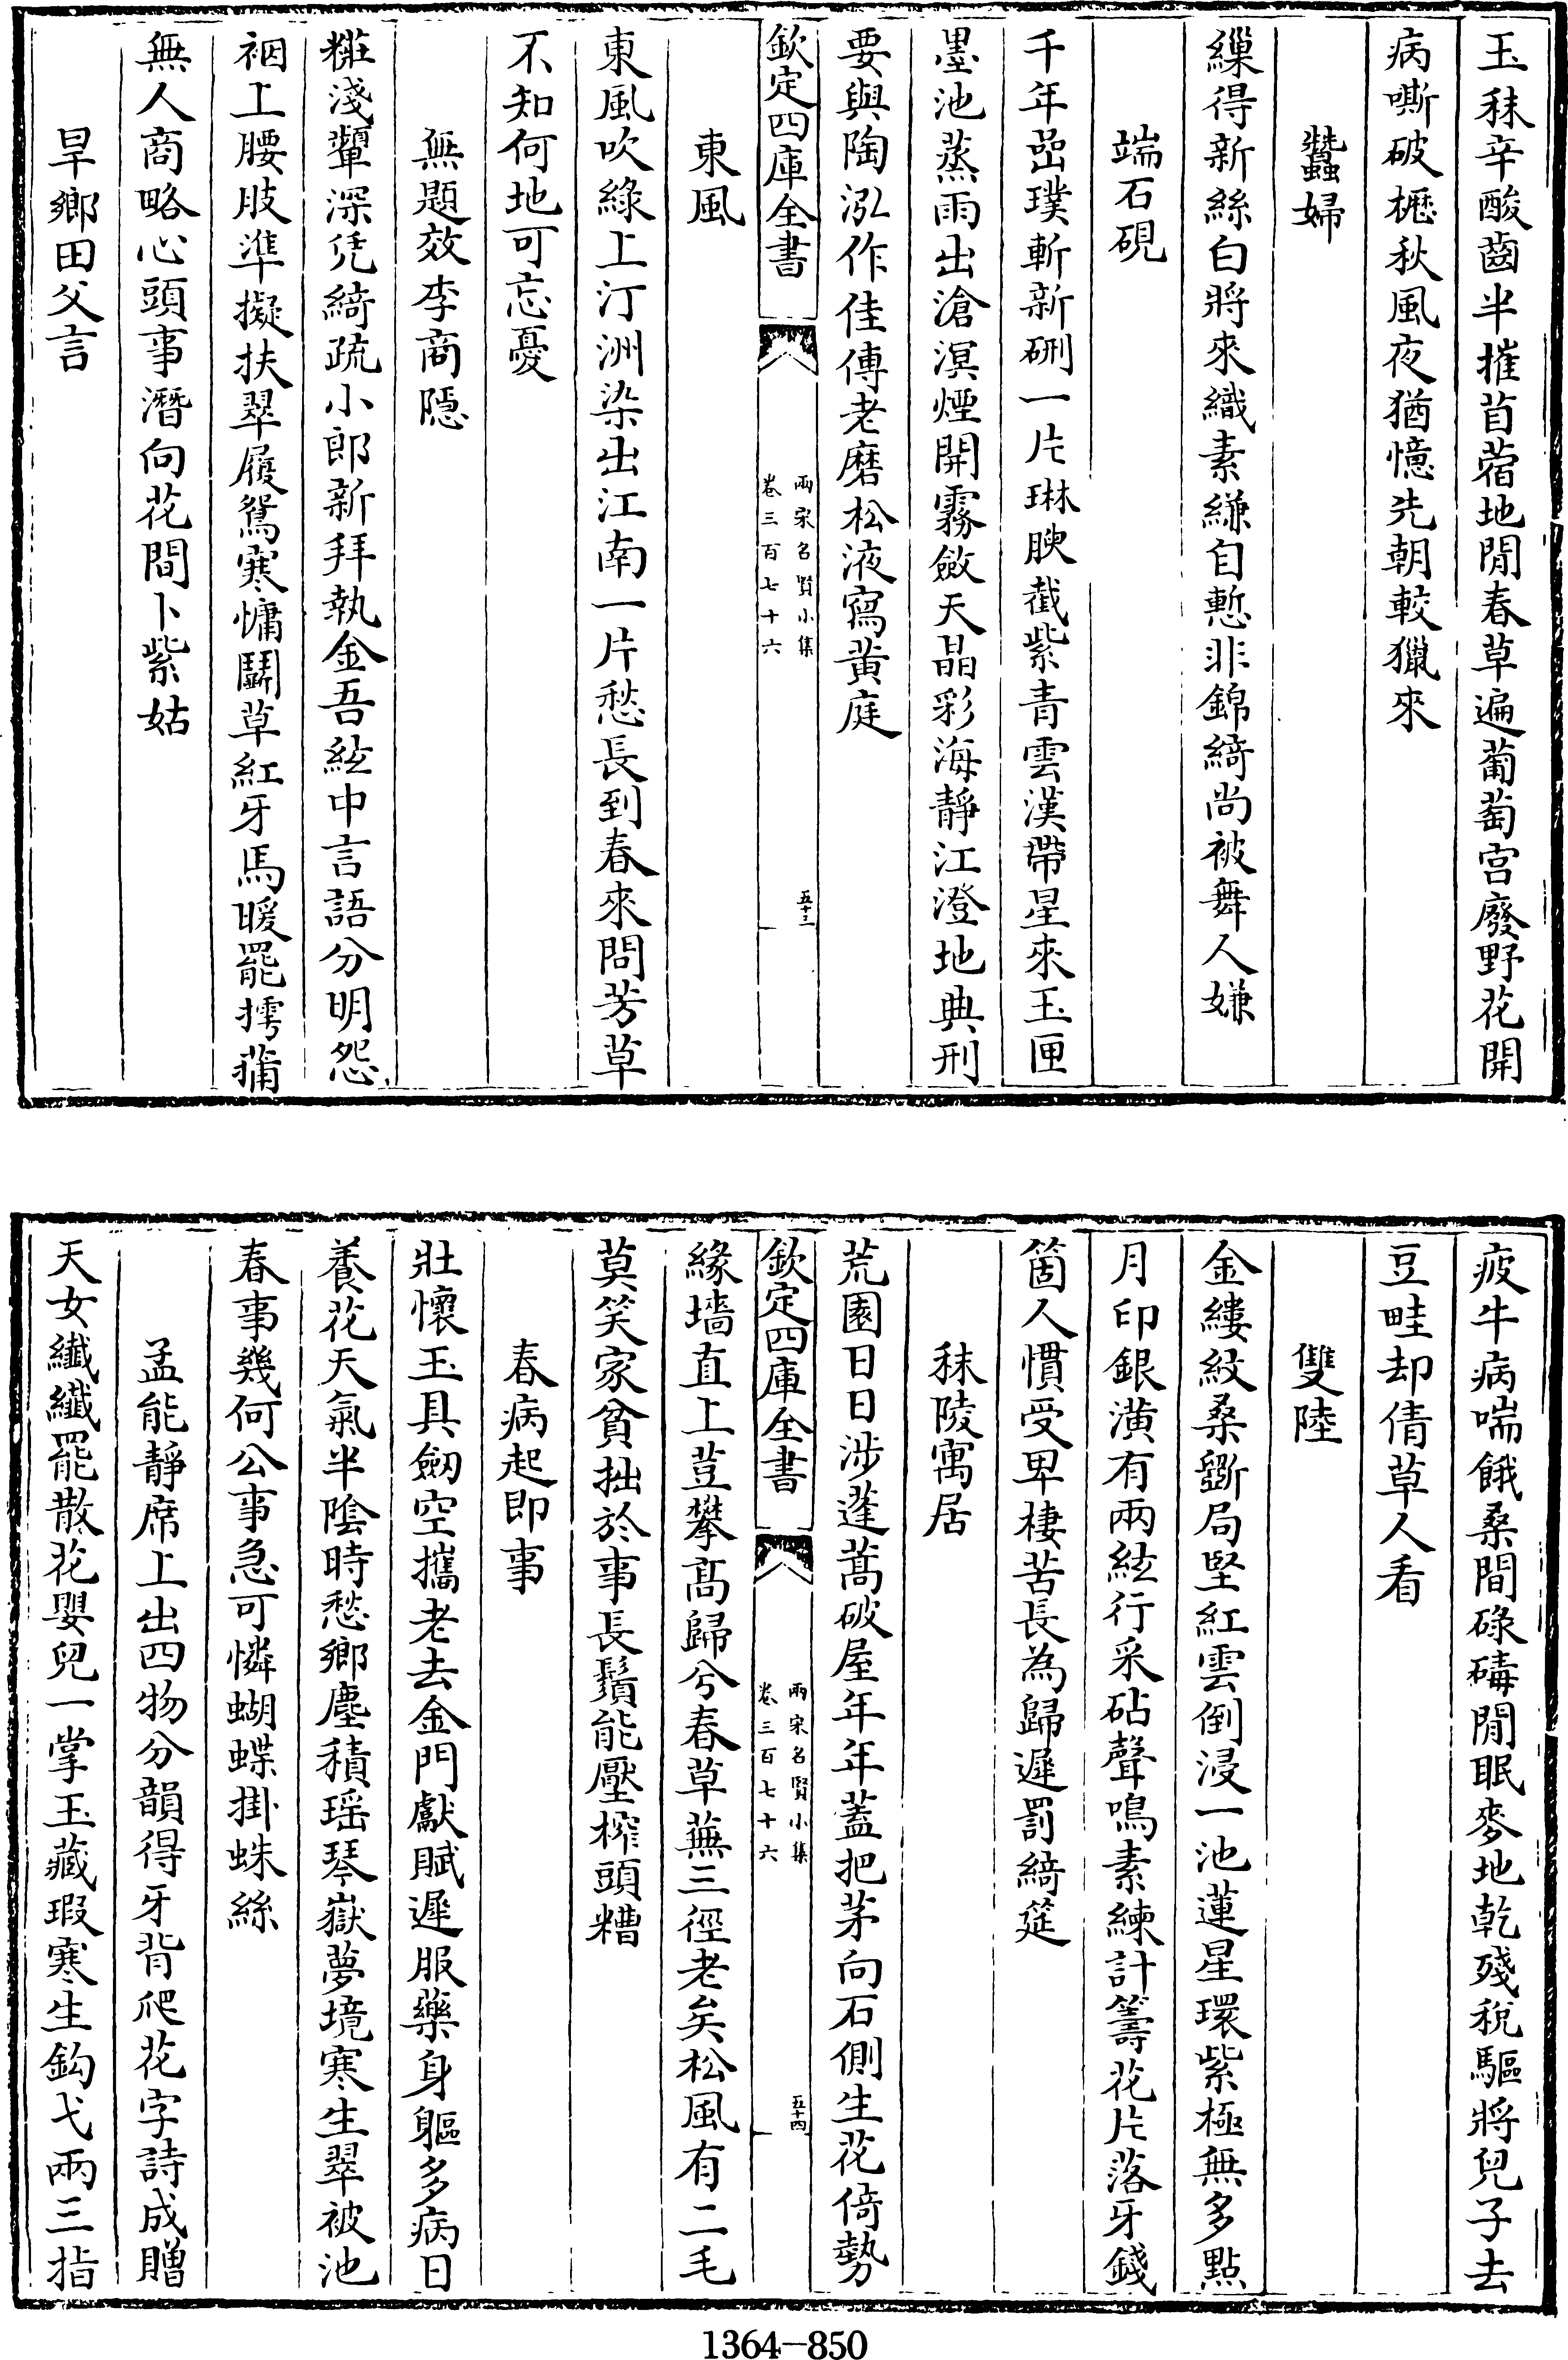 玉秣辛酸齒半摧苜蓿地閒春草遍葡萄宫廢野花開
病嘶破櫪秋風夜猶憶先朝較獵來
蠶婦
繅得新絲白將來織素縑自慙非錦綺尚被舞人嫌
端石硯
千年嵒璞斬新硎一片琳腴截紫青雲漢帶星來玉匣
墨池蒸雨出滄溟煙開霧斂天晶彩海靜江澄地典刑
要與陶泓作佳傳老磨松液寫黄庭
欽定四庫全書
兩宋名賢小集
卷三百七十六
五十三
東風
東風吹綠上汀洲染出江南一片愁長到春來問芳草
不知何地可忘憂
無題效李商隠
粧淺顰深凭綺疏小郎新拜執金吾絃中言語分明怨
裀上腰肢準擬扶翠履鴛寒慵鬬草紅牙馬暖罷摴蒱
無人商略心頭事潛向花間卜紫姑
旱鄉田父言
疲牛病喘餓桑間碌碡閒眠麥地乾殘稅驅將兒子去
豆畦却倩草人看
雙陸
金縷紋桑斵局堅紅雲倒浸一池蓮星環紫極無多點
月印銀潢有兩絃行采砧聲鳴素練計籌花片落牙錢
箇人慣受卑棲苦長為歸遲罰綺筵
秣陵寓居
荒園日日涉蓬蒿破屋年年蓋把茅向石側生花倚勢
欽定四庫全書
兩宋名賢小集
卷三百七十六
五十四
緣墻直上荳攀髙歸兮春草蕪三徑老矣松風有二毛
莫笑家貧拙於事長鬚能壓榨頭糟
春病起即事
壯懷玉具劒空攜老去金門獻賦遲服藥身軀多病日
養花天氣半陰時愁鄉塵積瑶琴嶽夢境寒生翠被池
春事幾何公事急可憐蝴蝶掛蛛絲
孟能靜席上出四物分韻得牙背爬花字詩成贈
天女纖纖罷散花嬰兒一掌玉藏瑕寒生鈎弋兩三指
1364-850